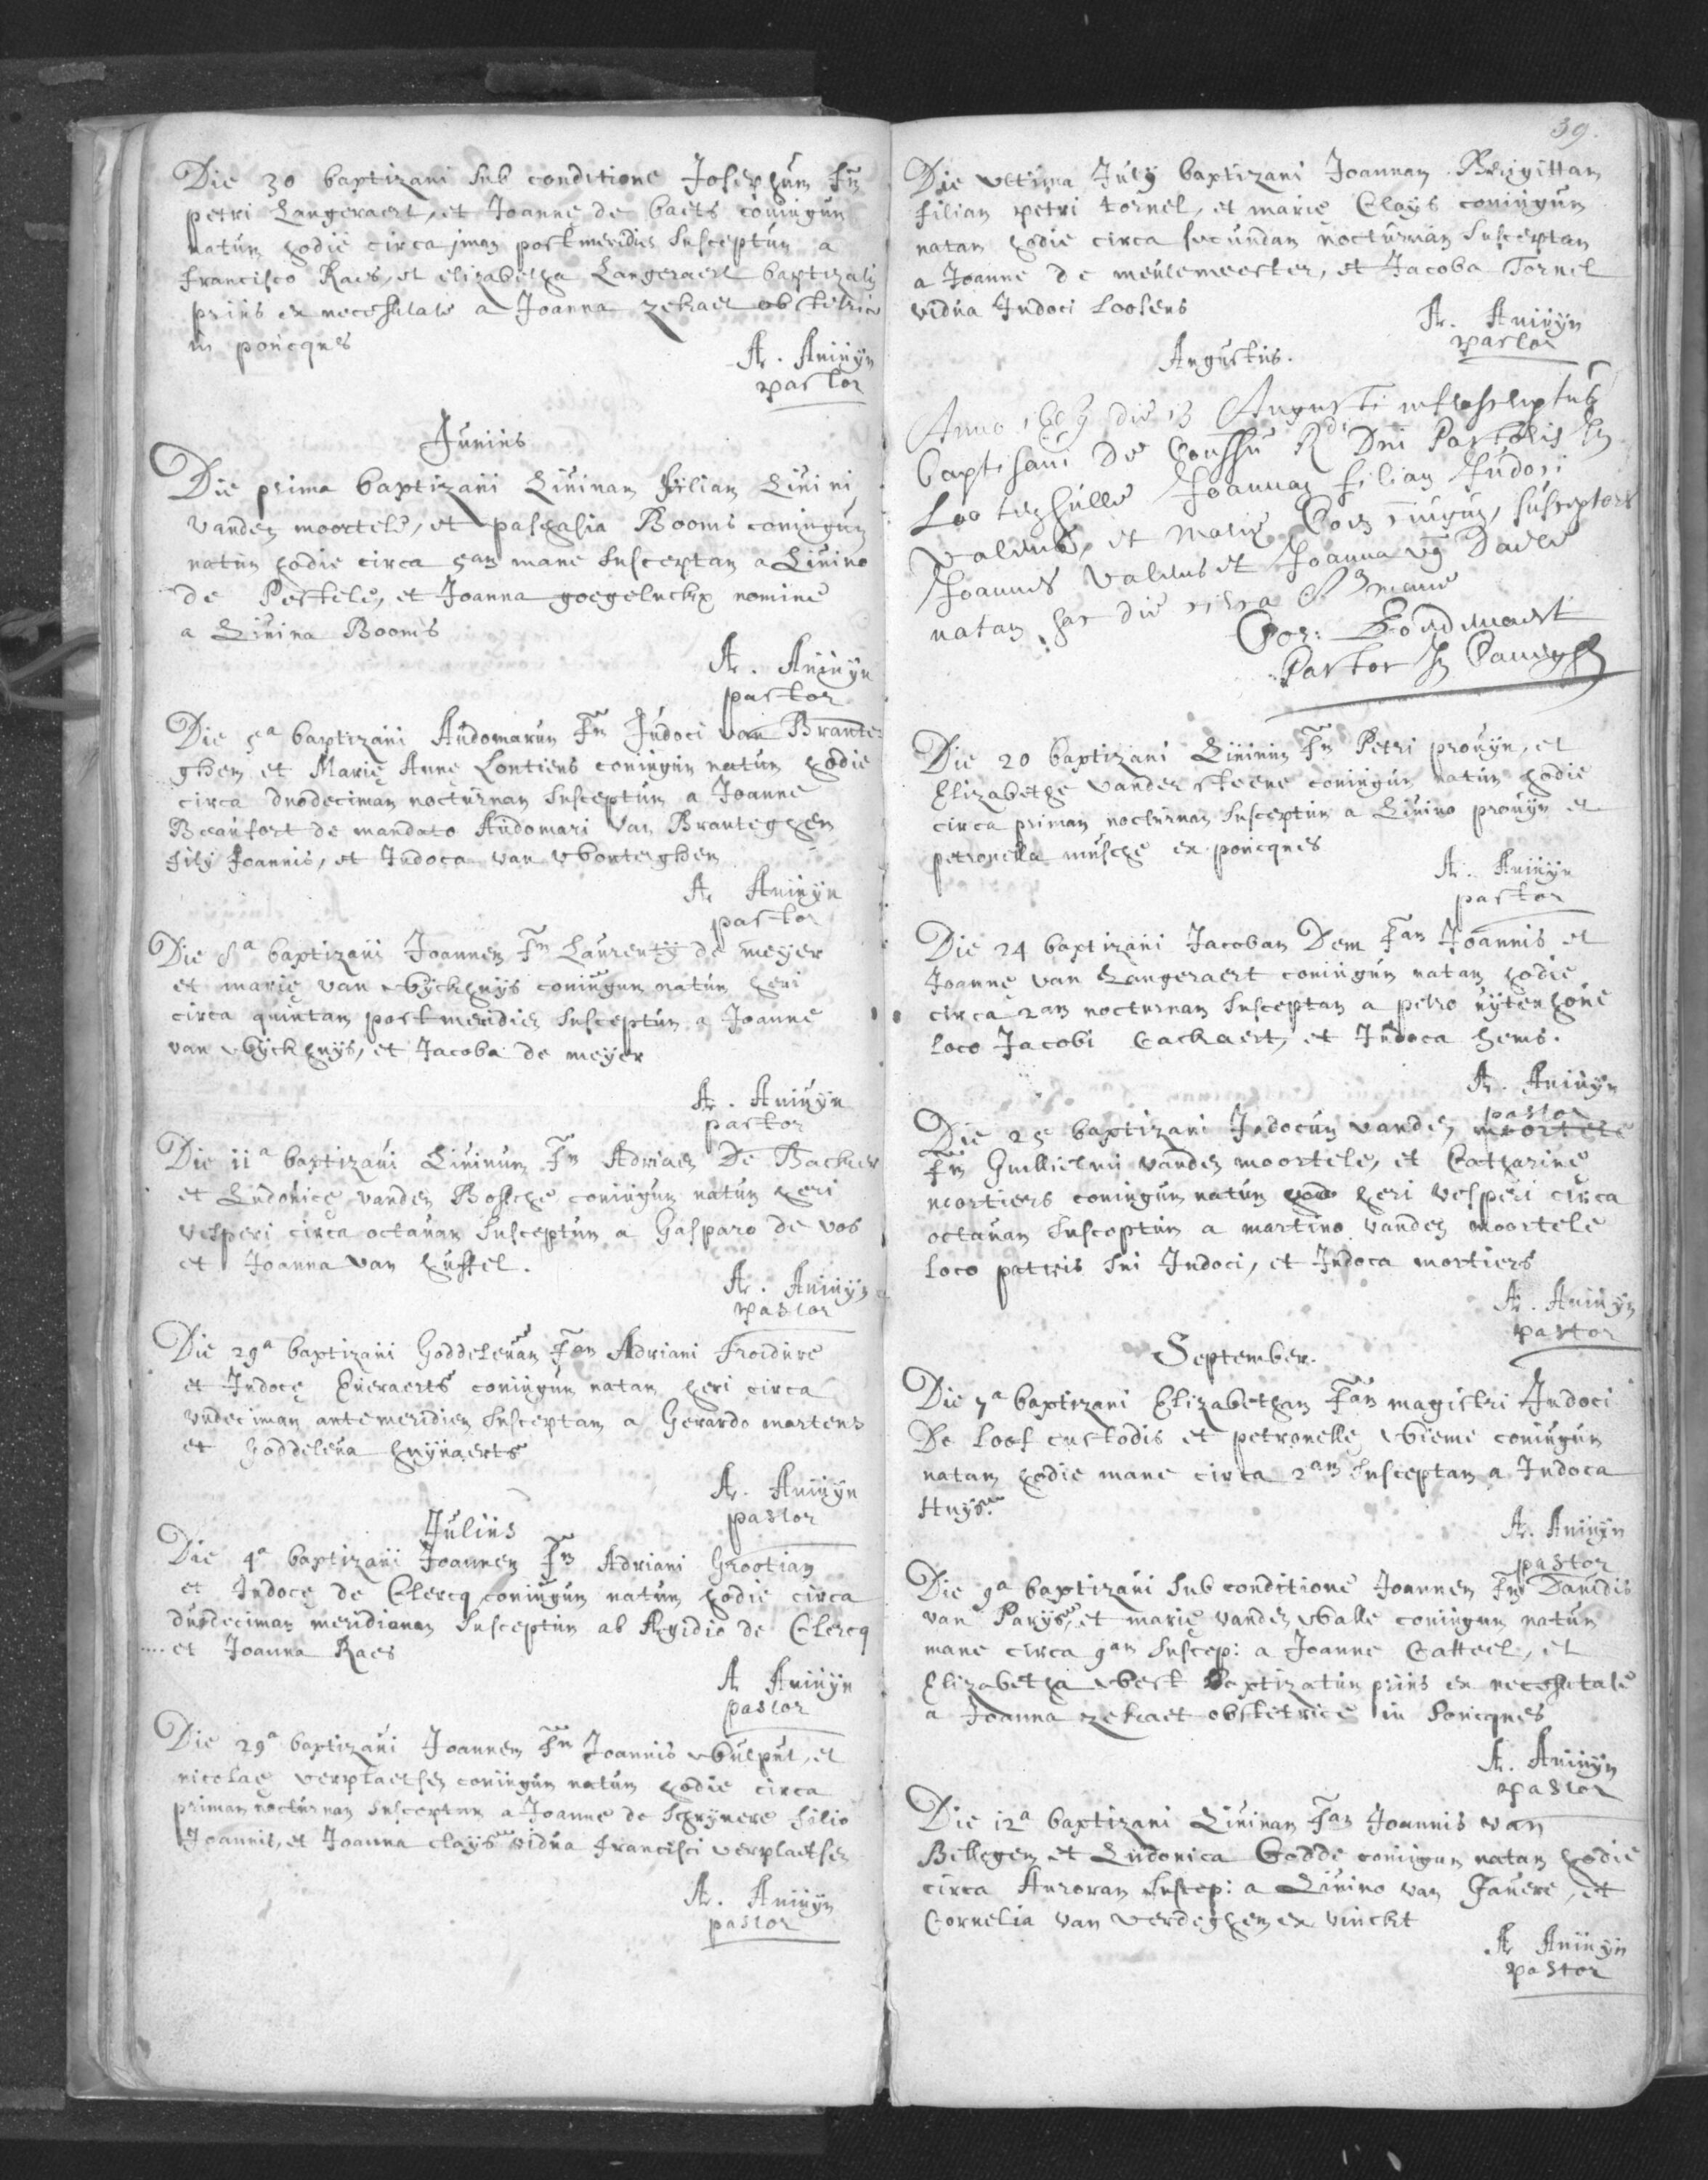 Die 30 baptizaui sub conditione Josephum fm
petri Langeraert, et Joannę de baets coniugum
natum hodie circa imam postmeridiem susceptum a
francisco Raes, et elizabetha Langeraert baptizatum
prius ex necessitate a Joanna zekaet obstetrice
in poucques
A. Aniuÿn
pastor
Junius
Die prima baptizaui Liuinam filiam Liuini
vanden moortele, et paschasia Booms coniugum
natum hodie circa 5am mane susceptam a Liuino
de Pestele, et Joanna goegeluckx nomine
a Liuina Booms
A. Aniuÿn
pastor
Die 5a baptizaui Audomarum Fm Judoci van Brante-
ghem et Marię Annę Lontiens coniugum natum hodie
circa duodecimam nocturnam susceptum a Joanne
Beaufort de mandato Audomari van Branteghem
filÿ Joannis, et Judoca van wonterghem
A. Aniuÿn
pastor
Die 8a baptizaui Joannem Fm Laurentÿ de meyer
et marię van wÿckhuÿs coniugum natum heri
circa quintam postmeridiem susceptum a Joanne
van wÿckhuÿs, et Jacoba de meÿer
A. Aniuÿn
pastor
Die 11a baptizaui Liuinum Fm Adriaen De Backer
et Ludouicę vanden Bossche coniugum natum heri
vesperi circa octauam susceptum a Gasparo de vos
et Joanna van hussel.
A. Aniuÿn
pastor
Die 29a baptizaui Goddeleuam Fam Adriani Froidure
et Judocę Eueraerts coniugum natam heri circa
vndecimam antemeridiem susceptam a Gerardo martens
et Goddeleua huÿnaerts
A. Aniuÿn
pastor
Julius
Die 4a baptizaui Joannem Fm Adriani Grootian
et Judocę de Clercq coniugum natum hodie circa
duodecimam meridianam susceptum ab Aegidio de Clercq
et Joanna Raes
A Aniuÿn
pastor
Die 29a baptizaui Joannem Fm Joannis wulput, et
nicolaę verplaetsen coniugum natum hodie circa
primam nocturnam susceptum a Joanne de Schrÿuere filio
Joannis, et Joanna claÿs vidua francisci verplaetsen
A. Aniuÿn
pastor
39.
Die vltima Julÿ baptizaui Joannam Brigittam
filiam petri tornel, et marię Claÿs coniugum
natam hodie circa secundam nocturnam susceptam
a Joanne de meulemeester, et Jacoba Tornel
vidua Judoci Loosens
A. Aniuÿn
pastor
Augustus.
Anno die 13 Augusti infrascriptus
baptisaui de Consensu Rdi Dni Pastoris in
Lootenhulle Joannam filiam Judoci
et Marię coniugum, susceptores
Joannes et Joanna
natam hac die circa mane
Cor:
Pastor in
Die 20 baptizaui Liuinum Fm Petri prouÿn, et
Elizabethę vander steene coniugum natum hodie
circa primam nocturnam susceptum a Liuino prouÿn et
petronella musche ex poucques
A. Aniuÿn
pastor
Die 24 baptizaui Jacobam Dem Fam Joannis et
Joannę van Langeraert coniugum natam hodie
circa 2am nocturnam susceptam a petro uÿtenhoue
loco Jacobi Cackaert, et Judoca hems.
A. Aniuÿn
pastor
Die 25 baptizaui Judocum vanden moortele
fm Guillielmi vanden moortele, et Catharinę
mortiers coniugum natum heri vesperi circa
octauam susceptum a martino vanden moortele
loco patris sui Judoci, et Judoca mortiers
A. Aniuÿn
pastor
September.
Die 7a baptizaui Elizabetham Fam magistri Judoci
De Loof custodis et petronellę wieme coniugum
natam hodie mane circa 2am susceptam a Judoca
Huÿs.
A. Aniuÿn
pastor
Die 9a baptizaui sub conditione Joannem Fm Dauidis
van Parÿs, et marię vanden walle coniugum natum
mane circa 9am suscep: a Joanne Catteel, et
Elizabetha west Baptizatum prius ex necessitate
a Joanna zekaet obstetrice in Poucques
A. Aniuÿn
pastor
Die 12a baptizaui Liuinam Fam Joannis van
Bellegem et Ludouica Godde coniugum natam hodie
circa Auroram suscep: a Liuino van Fauere, et
Cornelia van verdeghem ex vinckt
A Aniuÿn
pastor